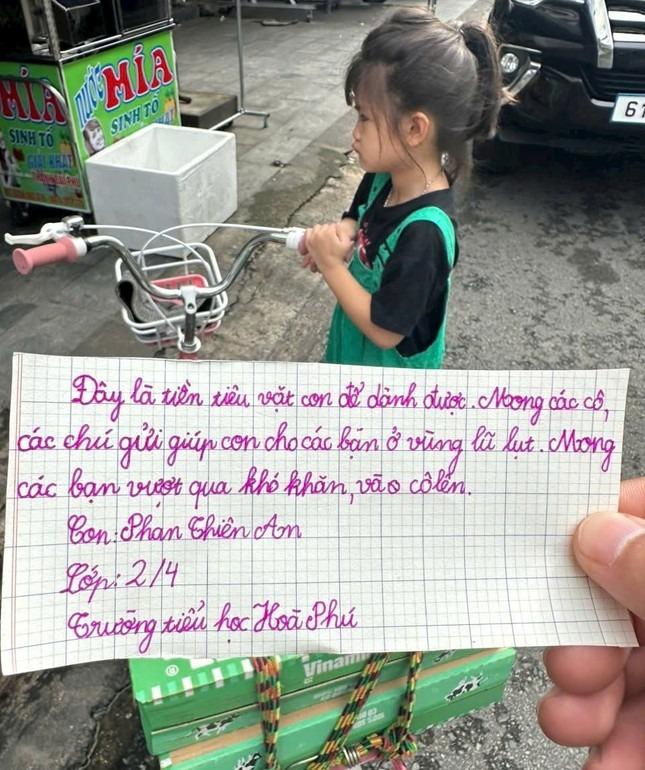 NƯỚC
MÍA
SINH TỐ
MÍA
SINH TỐ
GIẢI KHÁT
61
Đây là tiền tiêu vặt con để dành được. Mong các cô,
các chú gửi giúp con cho các bạn ở vùng lũ lụt. Mong
các bạn vượt qua khó khăn, vào cô lên.
Con: Phan Thiên An
Lớp: 2/4
Trường tiểu học Hoà Phú
Vinam